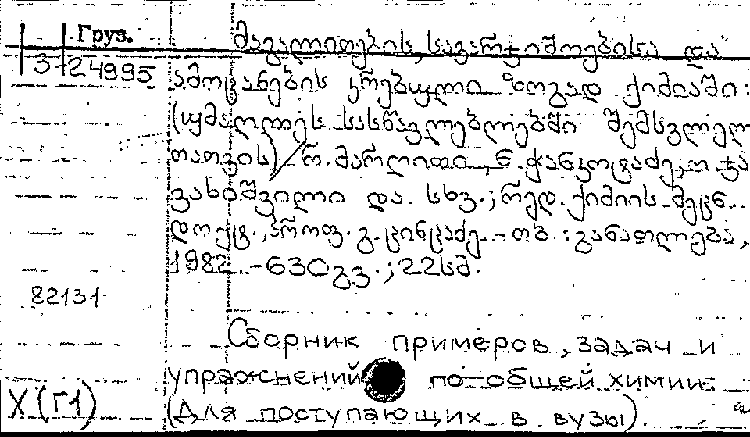 Груз.
3-24995
მაგალითების, სავარჯიშოებისა და
ამოცანების კრებული ზოგად ქიმიაში:
(უმაღლეს სასწავლებლებში შემსვლელ
თათვის)/ რ. მარლიძე, ნ.
ვახიშვილი და სხვ.; რედ. ქიმიის მეცნ.
დოქტ., პროფ. გ. ცინცაძე. -თბ.: განათლება,
1982. -630გვ.; 22სმ.
82131
Сборник примеров, задач и
упражнений по общей химии:
Х(Г1)
(Для поступающих в вузы).